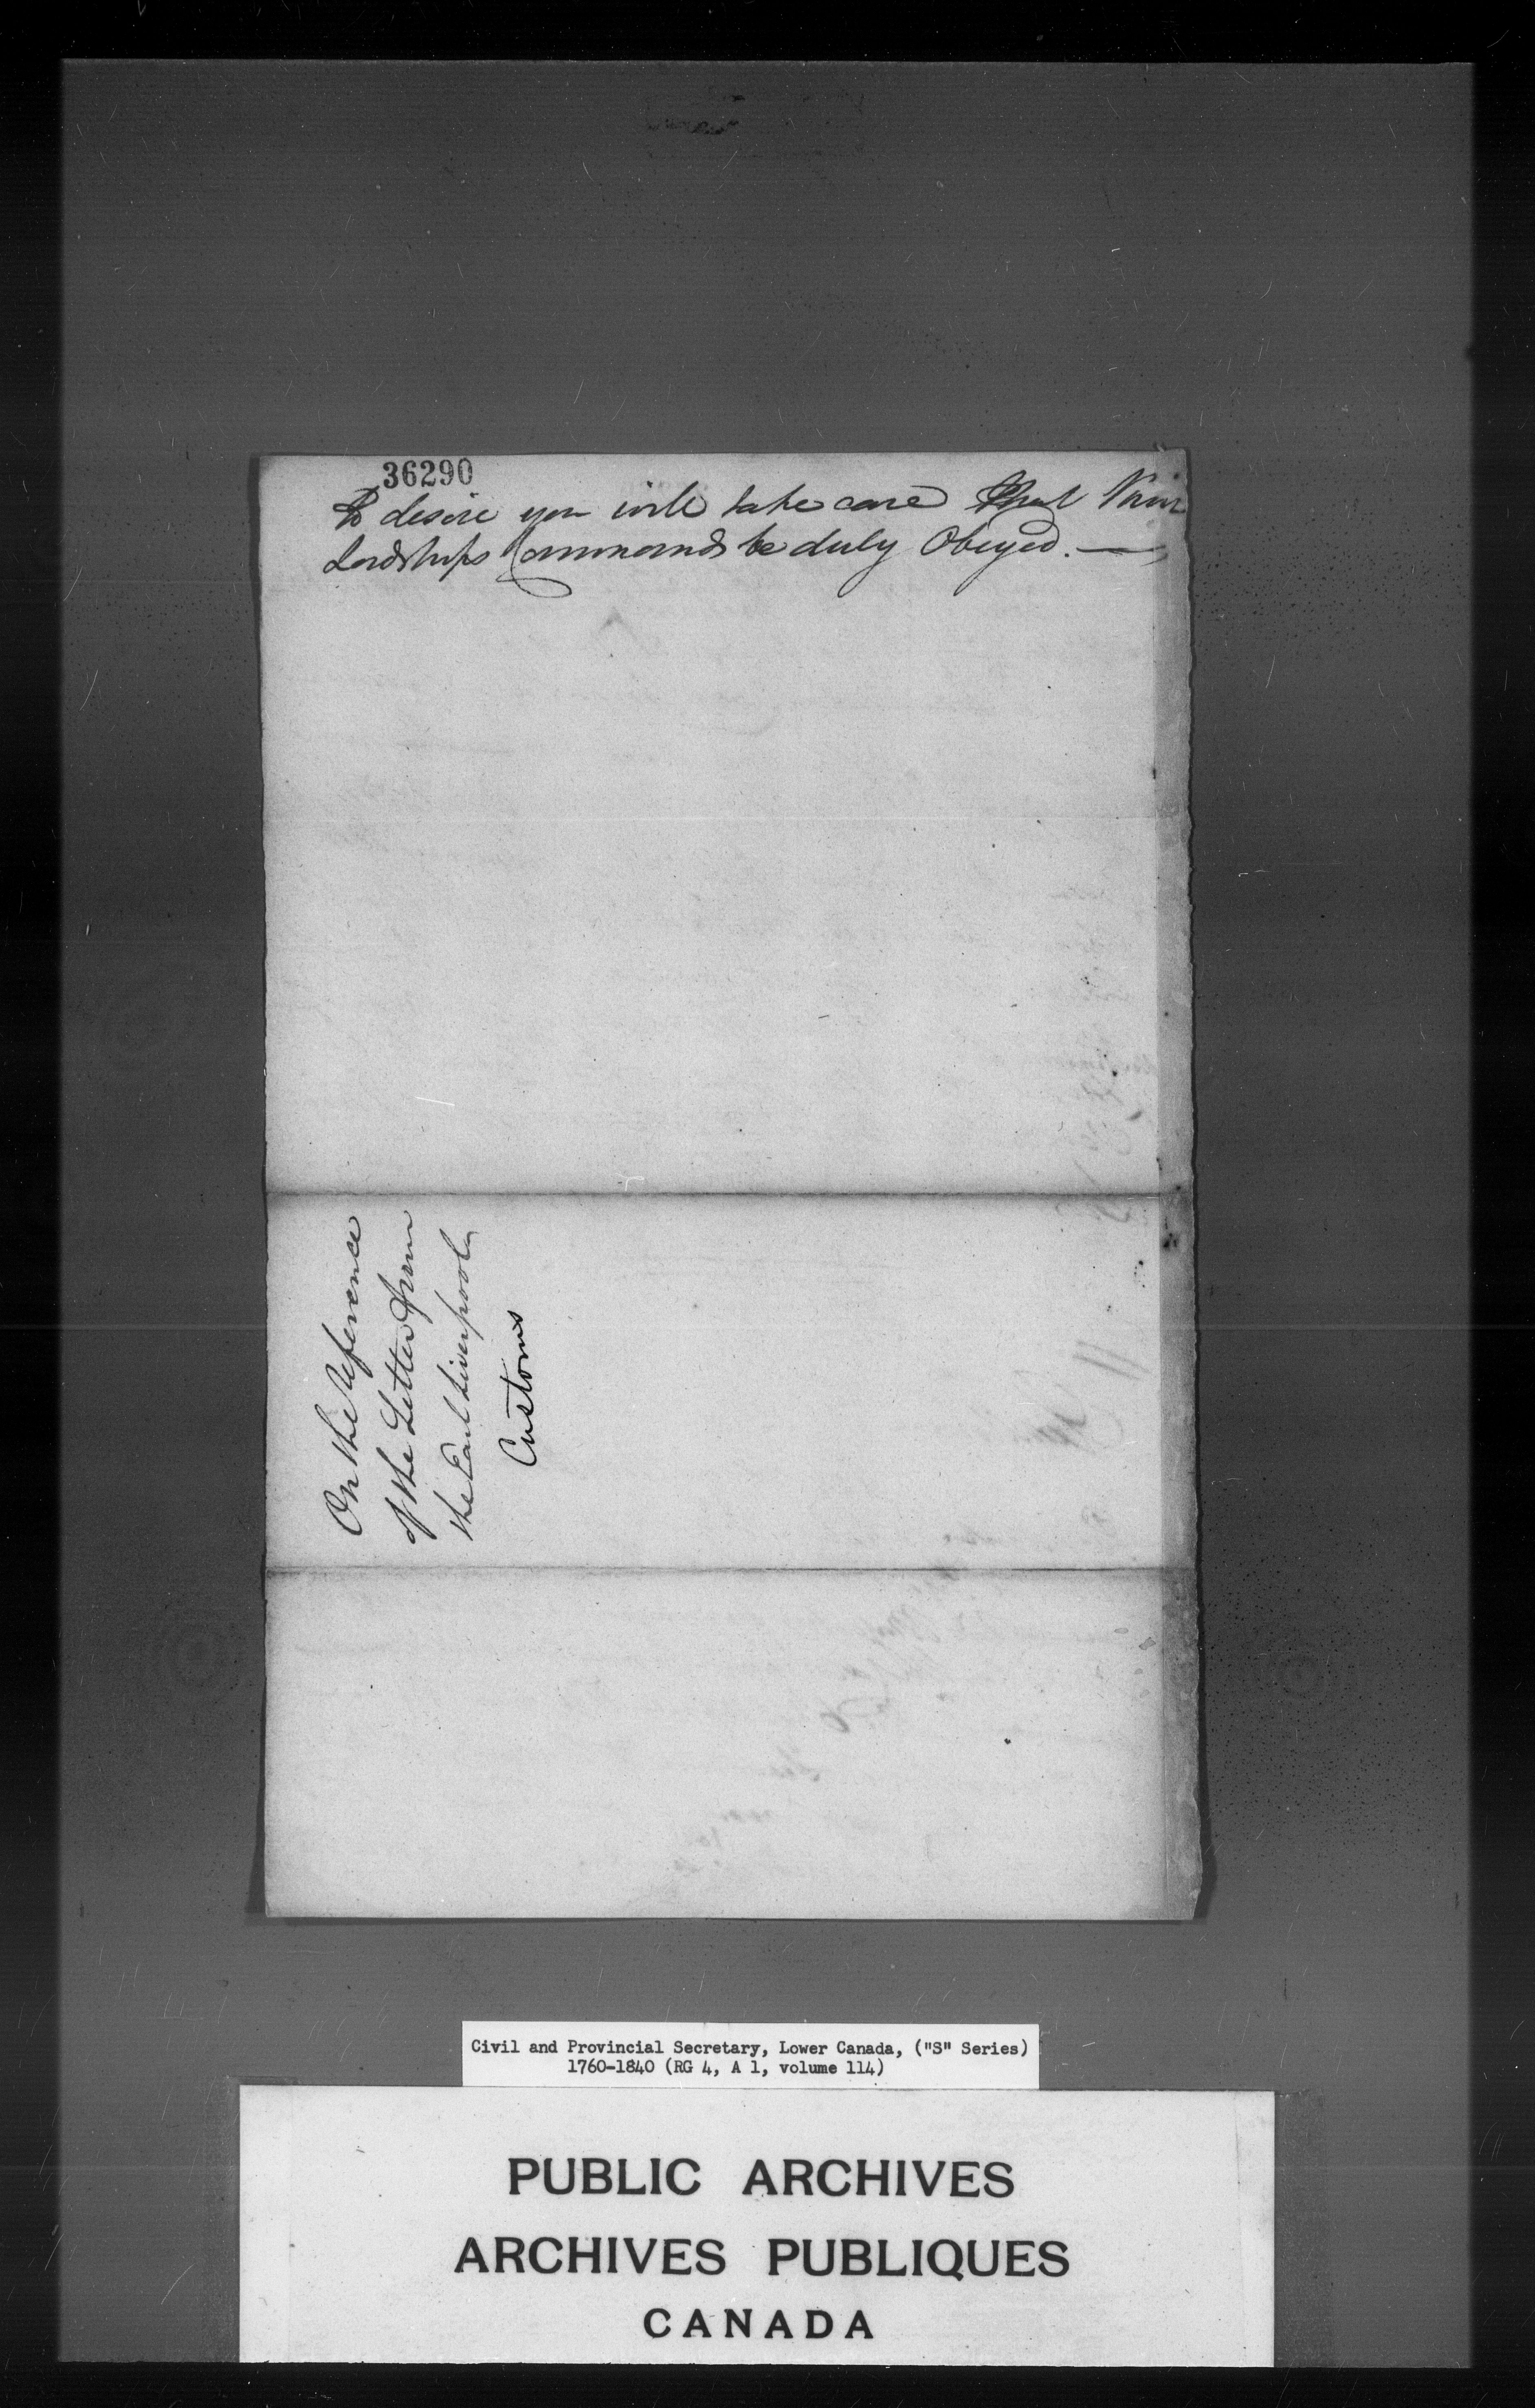 36290
To desire you will take care that Their
Lordships Commands be duly Obeyed. —
On the reference
of the Letter from
the Earl Liverpool
Customs
Civil and Provincial Secretary, Lower Canada, ("S" Series)
1760-1840 (RG 4, A 1, volume 114)
PUBLIC ARCHIVES
ARCHIVES PUBLIQUES
CANADA